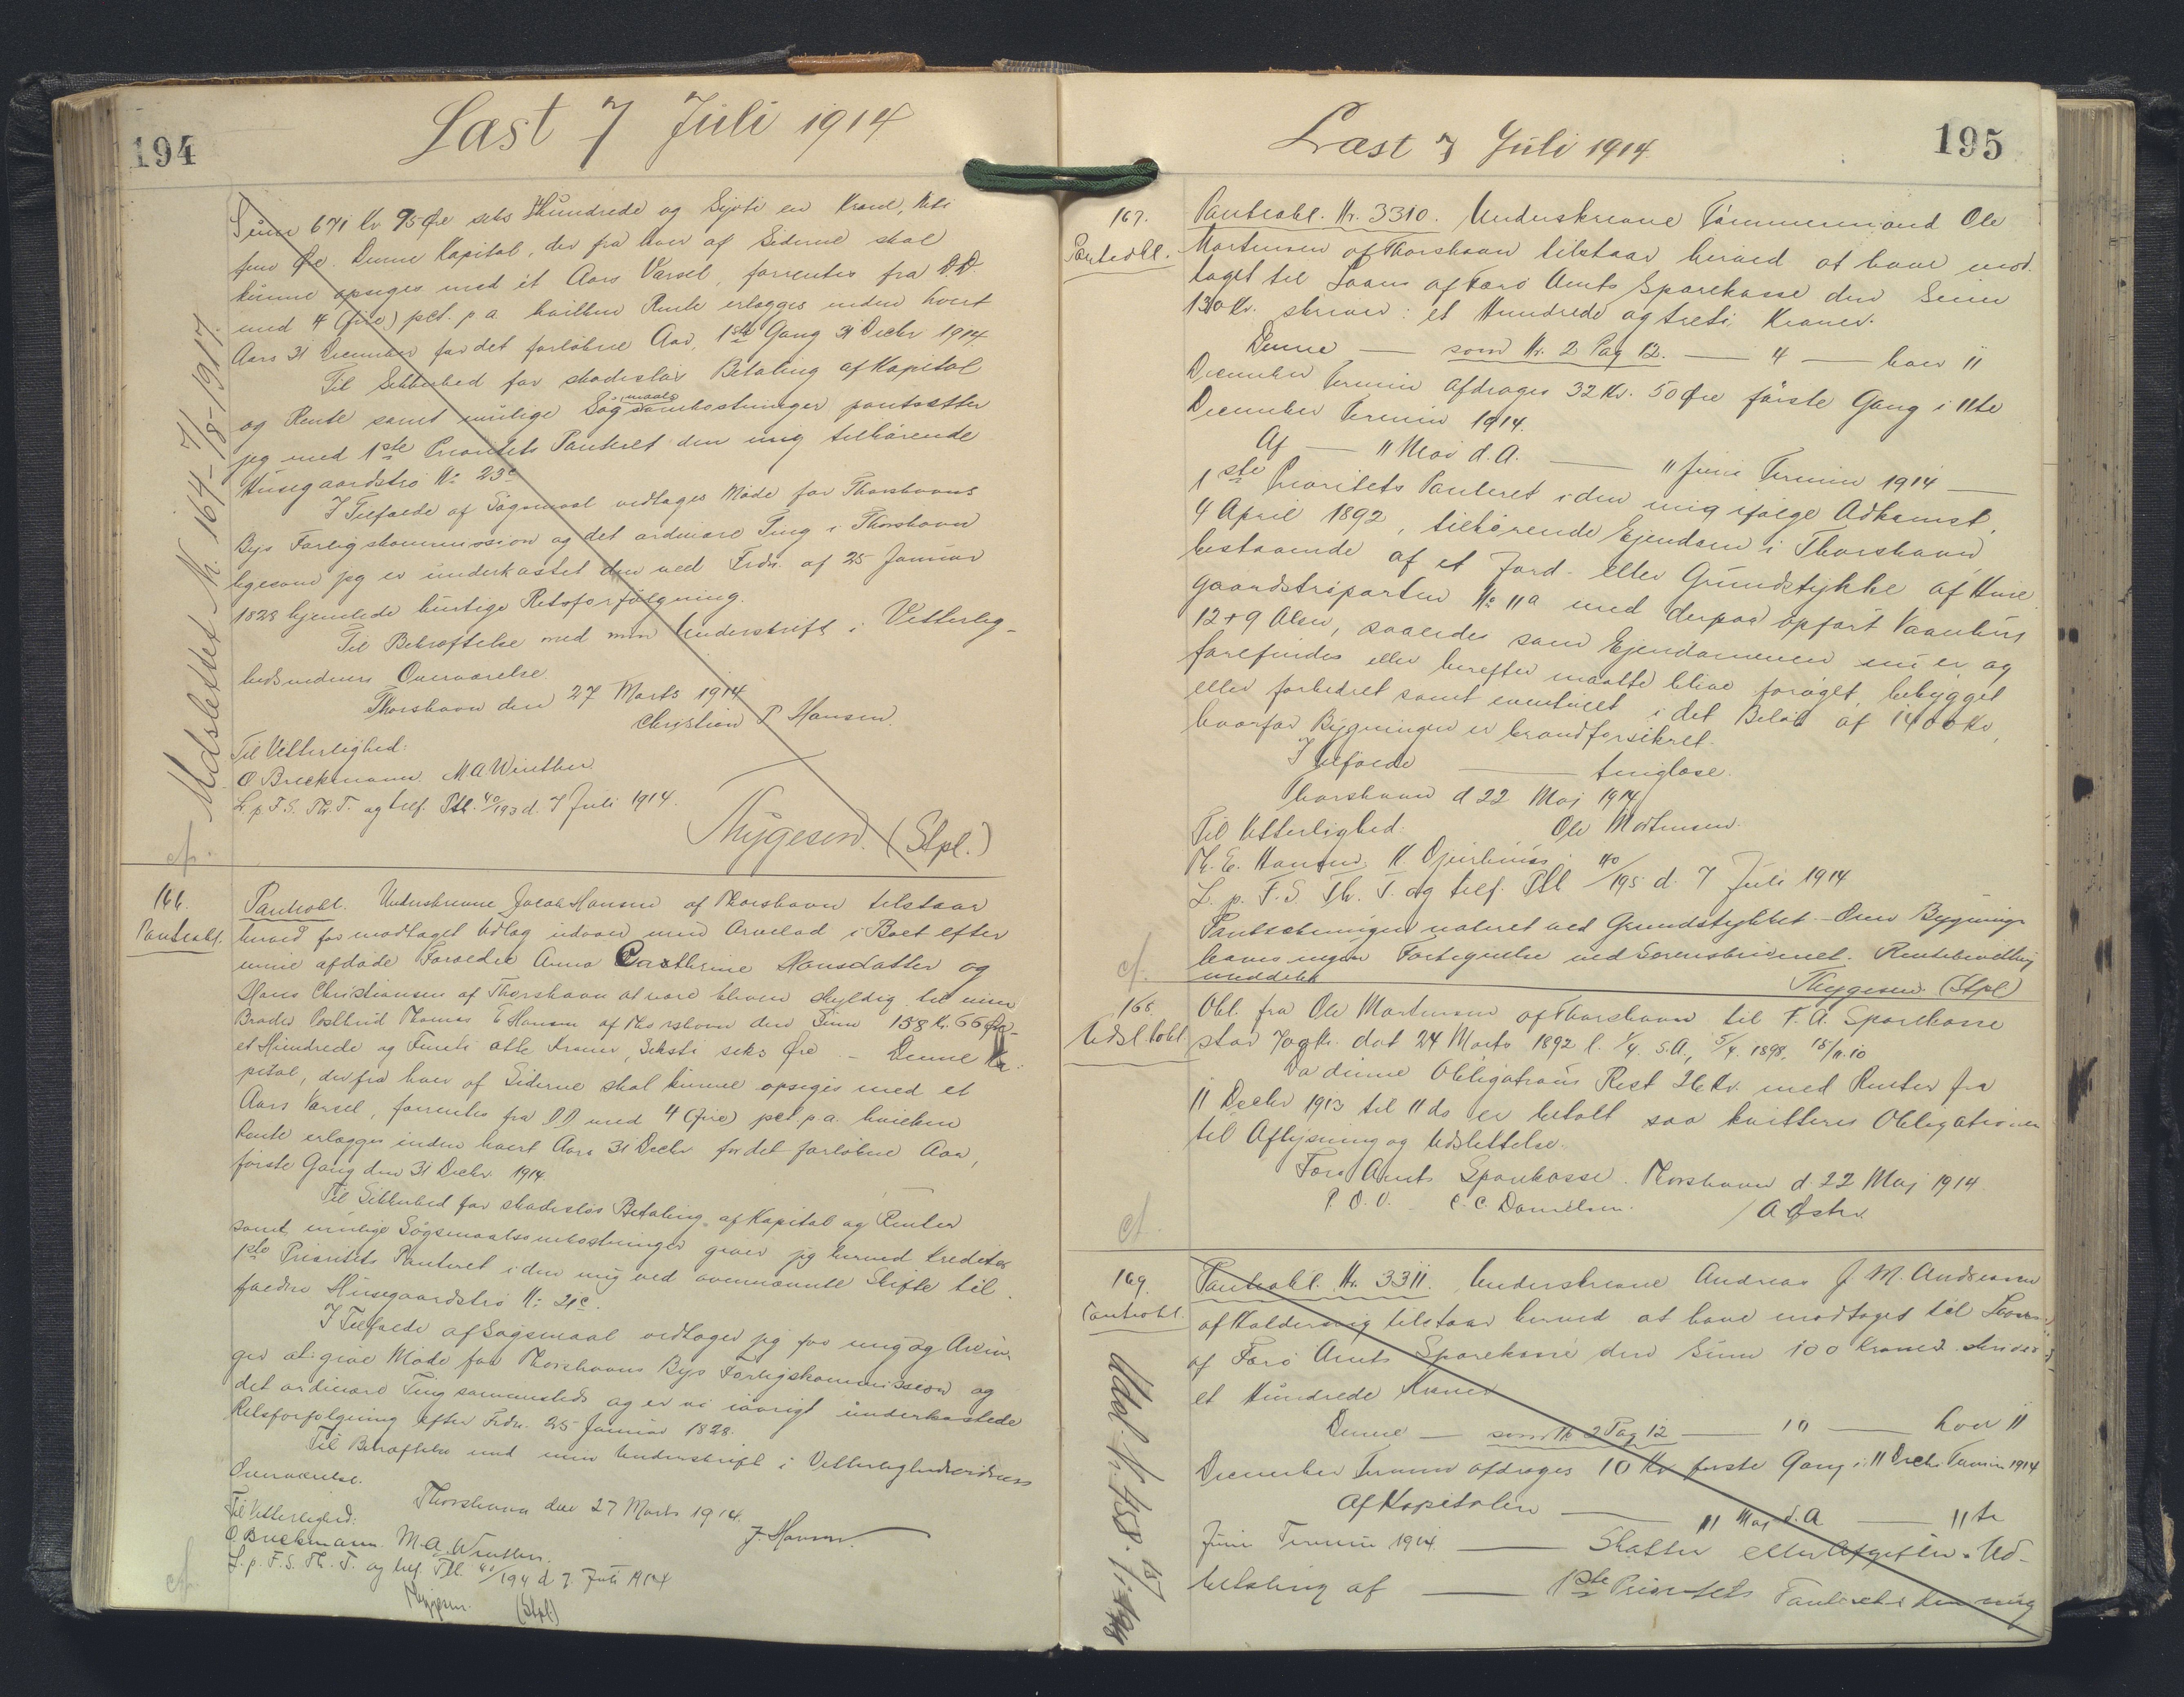 194
Læst 7 Juli 1914
Udslettet N. 164 - 7/8 - 1917.
Sum 671 Kr 95 Øre seks Hundrede og Sytti en Krone, Niti
fem Øre. Denne Kapital, der fra hver af Siderne skal
kunne opsiges med et Aars Varsel, forrentes fra D.D.
med 4 (fire) pct. p.a. hvilken Rente erlægges inden hvert
Aars 31 December for det forløbne Aar, 1ste Gang 31 Decbr 1914
Til Sikkerhed for skadesløs Betaling af Kapital
og Rente samt mulige Søgsmaalsomkostninger pantsætter
jeg med 1ste Prioritets Panteret den mig tilhørende
Husegaardstrø No 23c
I Tilfælde af Søgsmaal vedtages Møde for Thorshavns
Bys Forligskommission og det ordinære Ting i Thorshavn
ligesom jeg er underkastet den ved Frdn. af 25 Januar
1828 hjemlede hurtige Retsforfølgning.
Til Bekræftelse med min Underskrift i Vitterlig-
hedsvidners Overværelse.
Thorshavn den 27 Marts 1914
Christian P Hansen.
Til Vitterlighed:
O Breckmann. M A Winther
L. p. F. S. Th. T. og tilf. Ptl. 40/193 d. 7 Juli 1914.
Thygesen. (Stpl.)
cf.
166.
Panteobl.
Panteobl. Underskrevne Jacob Hansen af Thorshavn tilstaar
herved for modtaget Udlæg udover min Arvelod i Boet efter
mine afdøde Forældre Anna Cathrine Hansdatter og
Hans Christiansen af Thorshavn at være bleven skyldig til min
Broder Postbud Thomas E Hansen af Thorshavn den Sum 158 Kr. 66 Øre
et Hundrede og Femti otte Kroner, Seksti seks Øre – Denne Ka-
pital, der fra hver af Siderne skal kunne opsiges med et
Aars Varsel, forrentes fra DD med 4 (fire) pct p.a. hvilken
Rente erlægges inden hvert Aars 31 Decbr for det forløbne Aar,
første Gang den 31 Decbr. 1914.
Til Sikkerhed for skadesløs Betaling af Kapital og Renter
samt mulige Søgsmaalsomkostninger giver jeg herved Kreditor
1ste Prioritets Panteret i den mig ved ovennævnte Skifte til-
faldne Husegaardstrø No 21c.
I Tilfælde af Søgsmaal vedtager jeg for mig og Arvin-
ger at give Møde for Thorshavns Bys Forligskommission og
det ordinære Ting sammesteds og er vi iøvrigt underkastede
Retsforfølgning efter Frdn. 25 Januar 1828.
Til Bekræftelse med min Underskrift i Vitterlighedsvidners
Overværelse.
Thorshavn den 27 Marts 1914.
J. Hansen.
Til Vitterlighed:
O. Breckmann. M. A. Winther.
L. p. F. S. Th. T. og tilf. Ptl. 40/194 d 7. Juli 1914
Thygesen. (Stpl.)
cf.
195
Læst 7 Juli 1914
167.
Panteobl.
Panteobl. Nr. 3310. Underskrevne Tømmermand Ole
Mortensen af Thorshavn tilstaar herved at have mod-
taget til Laans af Færø Amts Sparekasse den Sum
130 Kr. skriver: et Hundrede og treti Kroner.
Denne — som Nr. 2 Pag 12. — 4 — hver 11
December Termin afdrages 32 Kr. 50 Øre første Gang i 11te
December Termin 1914.
Af — 11 Maj d. A. — 11 Juni Termin 1914 —
1ste Prioritets Panteret i den mig ifølge Adkomst,
4 April 1892, tilhørende Ejendom i Thorshavn,
bestaaende af et Jord- eller Grundstykke af Huse-
gaardstrøparten No 11a med derpaa opført Vaanhus
12 + 9 Alen, saaledes som Ejendommen nu er og
forefindes eller herefter maatte blive forøget, bebygget
eller forbedret samt eventuelt i det Beløb af 1400 Kr,
hvorfor Bygningen er brandforsikret.
I Tilfælde — tinglæse.
Thorshavn d 22 Maj 1914
Til Vitterlighed: Ole Mortensen.
Th. E. Hansen, K. Djurhuus.
L. p. F. S. Th. T. og tilf. Ptl 40/195 d. 7 Juli 1914
Pantsætningen noteret ved Grundstykket. – Om Bygninge
haves ingen Fortegnelse ved Sorenskriveriet. Rentebevilling
meddelt
Thygesen. (Stpl)
cf.
168.
Udsl. tobl
Obl. fra Ole Mortensen af Thorshavn til F. A. Sparekasse
stor 709 Kr. dat 24 Marts 1892 l. 1/4. s.A., 5/4. 1898, 15/11.10
Da denne Obligations Rest 26 Kr. med Renter fra
11 Decbr 1913 til 11 ds er betalt saa kvitteres Obligationen
til Aflysning og Udslettelse.
Færø Amts Sparekasse. Thorshavn d 22 Maj 1914
P. O. V. C. C. Danielsen.
cf.
169.
Panteobl.
Panteobl. Nr. 3311. Underskrevne Andreas J. M. Andreasen
af Kaldersvig tilstaar herved at have modtaget til Laans
af Færø Amts Sparekasse den Sum 100 Kroner skriver
et Hundrede Kroner
Denne — som Nr 2 Pag 12 — 10 — hver 11
December Termin afdrages 10 Kr første Gang i 11 Decbr. Termin 1914
Af Kapitalen — 11 Maj d. A — 11te
Juni Termin 1914 — Skatter eller Afgifter. Ud-
betaling af — 1ste Prioritets Panteret i den mig
Udsl. N. 458.